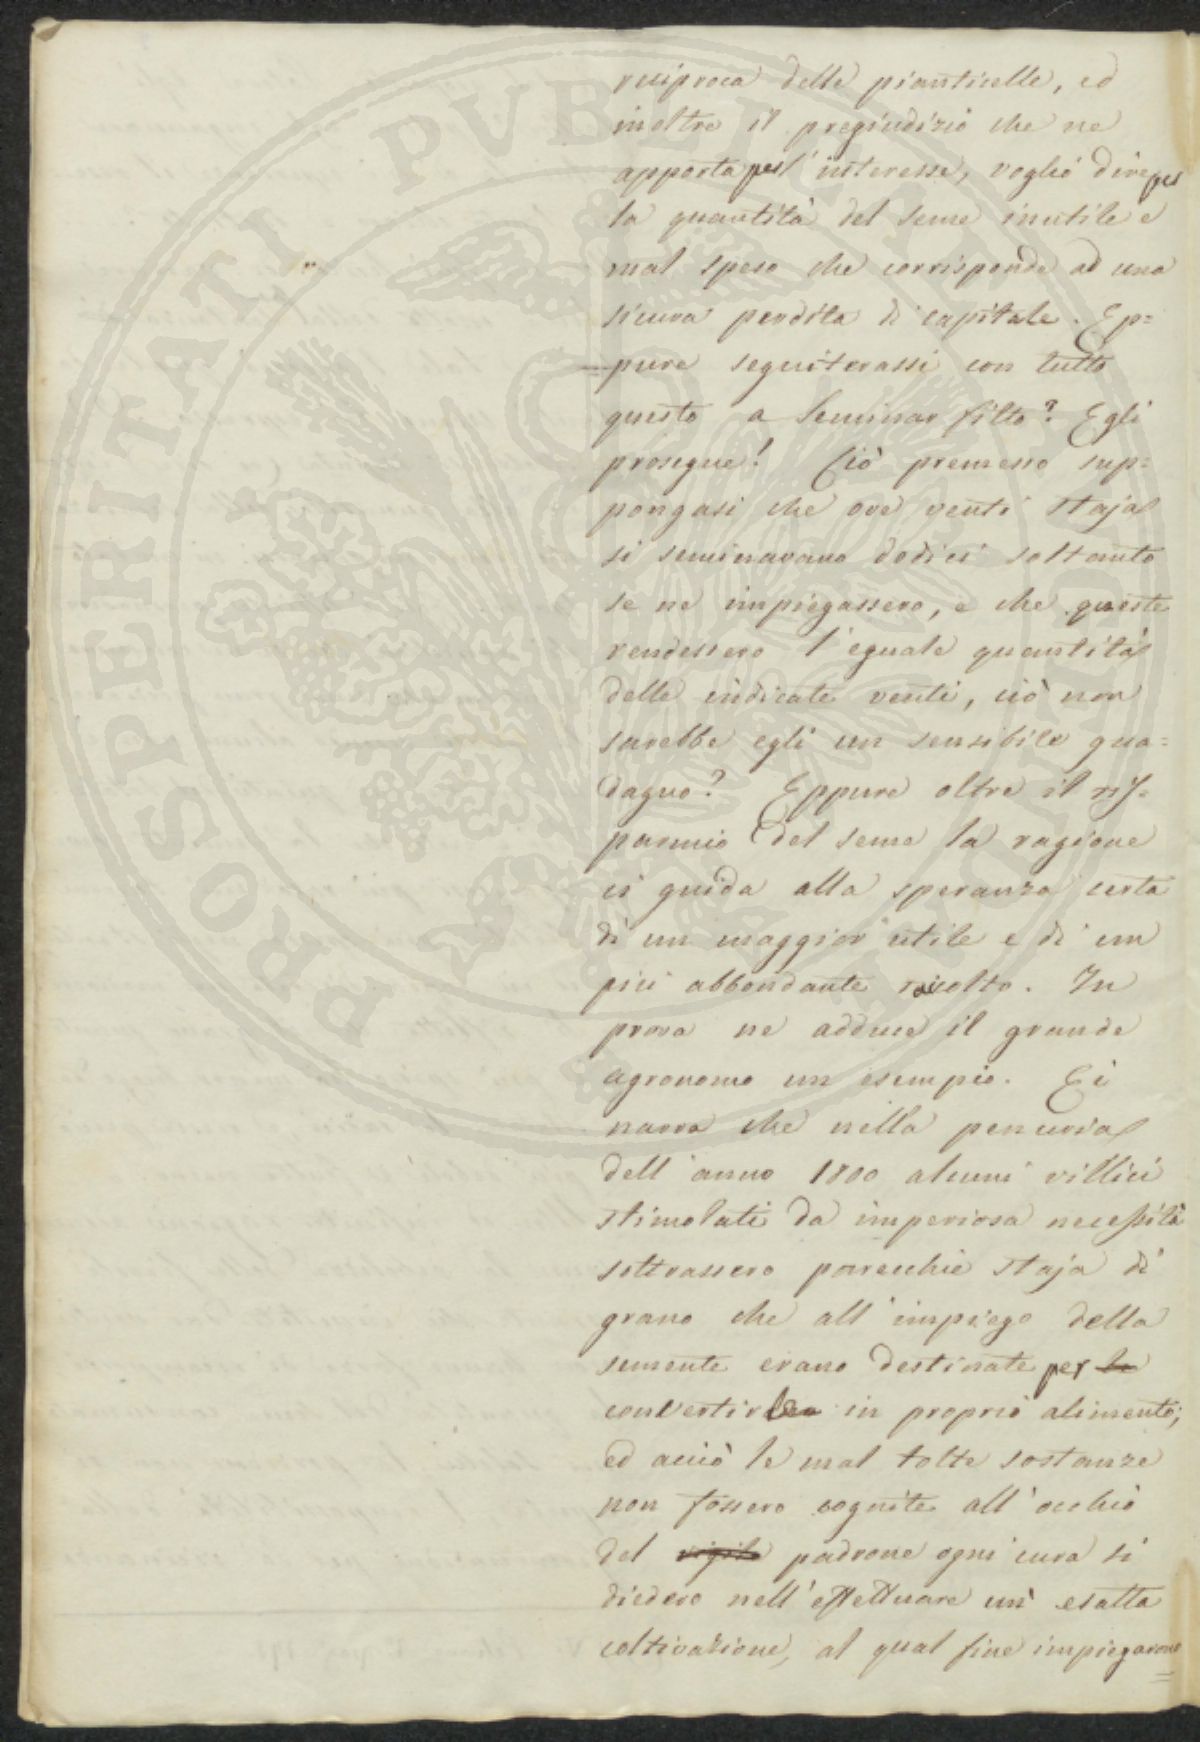 reciproca delle pianticelle, ed
inoltre il pregiudizio che ne
apporta pell'interesse, voglio dire per
la quantità del seme inutile e
mal speso che corrisponde ad una
sicura perdita di capitale. Ep=
pure seguiterassi con tutto
questo a Seminar fitto? Egli
prosegue! Ciò premesso sup=
pongasi che ove venti staja
si seminavano dodici soltanto
se ne impiegassero, e che queste
rendessero l'eguale quantità
delle indicate venti, ciò non
sarebbe egli un sensibile gua=
dagno? Eppure oltre il ris=
parmio del seme la ragione
ci guida alla speranza certa
di un maggior utile e di un
più abbondante racolto. In
prova ne adduce il grande
agronomo un esempio. Ei
narra che nella penuria
dell'anno 1800 alcuni villici
stimolati da imperiosa necessità
sottrassero parecchie staja di
grano che all'impiego della
semente erano destinate per
convertirle in proprio alimento;
ed acciò le mal tolte sostanze
non fossero cognite all'occhio
del vigile padrone ogni cura si
diedero nell'effettuare un' esatta
coltivazione, al qual fine impiegarono
PROSPERITATI PVBLICAE